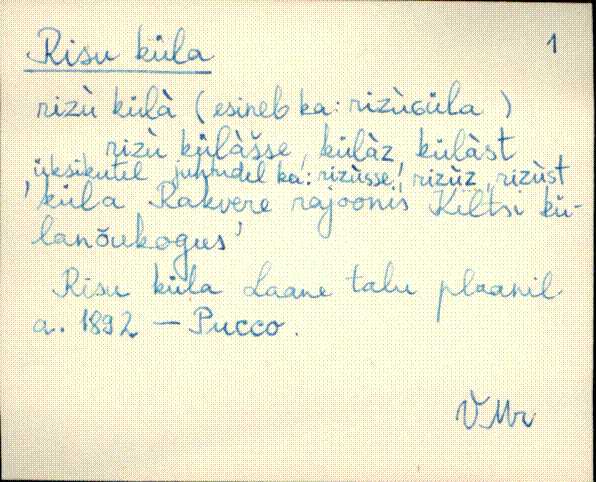 Risu küla 1
rizù külà (esineb ka: rizùGüla )
rizù külàšse, külàz, külàst
üksikutel juhtudel ka: rizùsse, rizùz, rizùst
'küla Rakvere rajoonis Kiltsi kü-
lanõukogus'
Risu küla Laane talu plaanil
a. 1892 — Pucco.